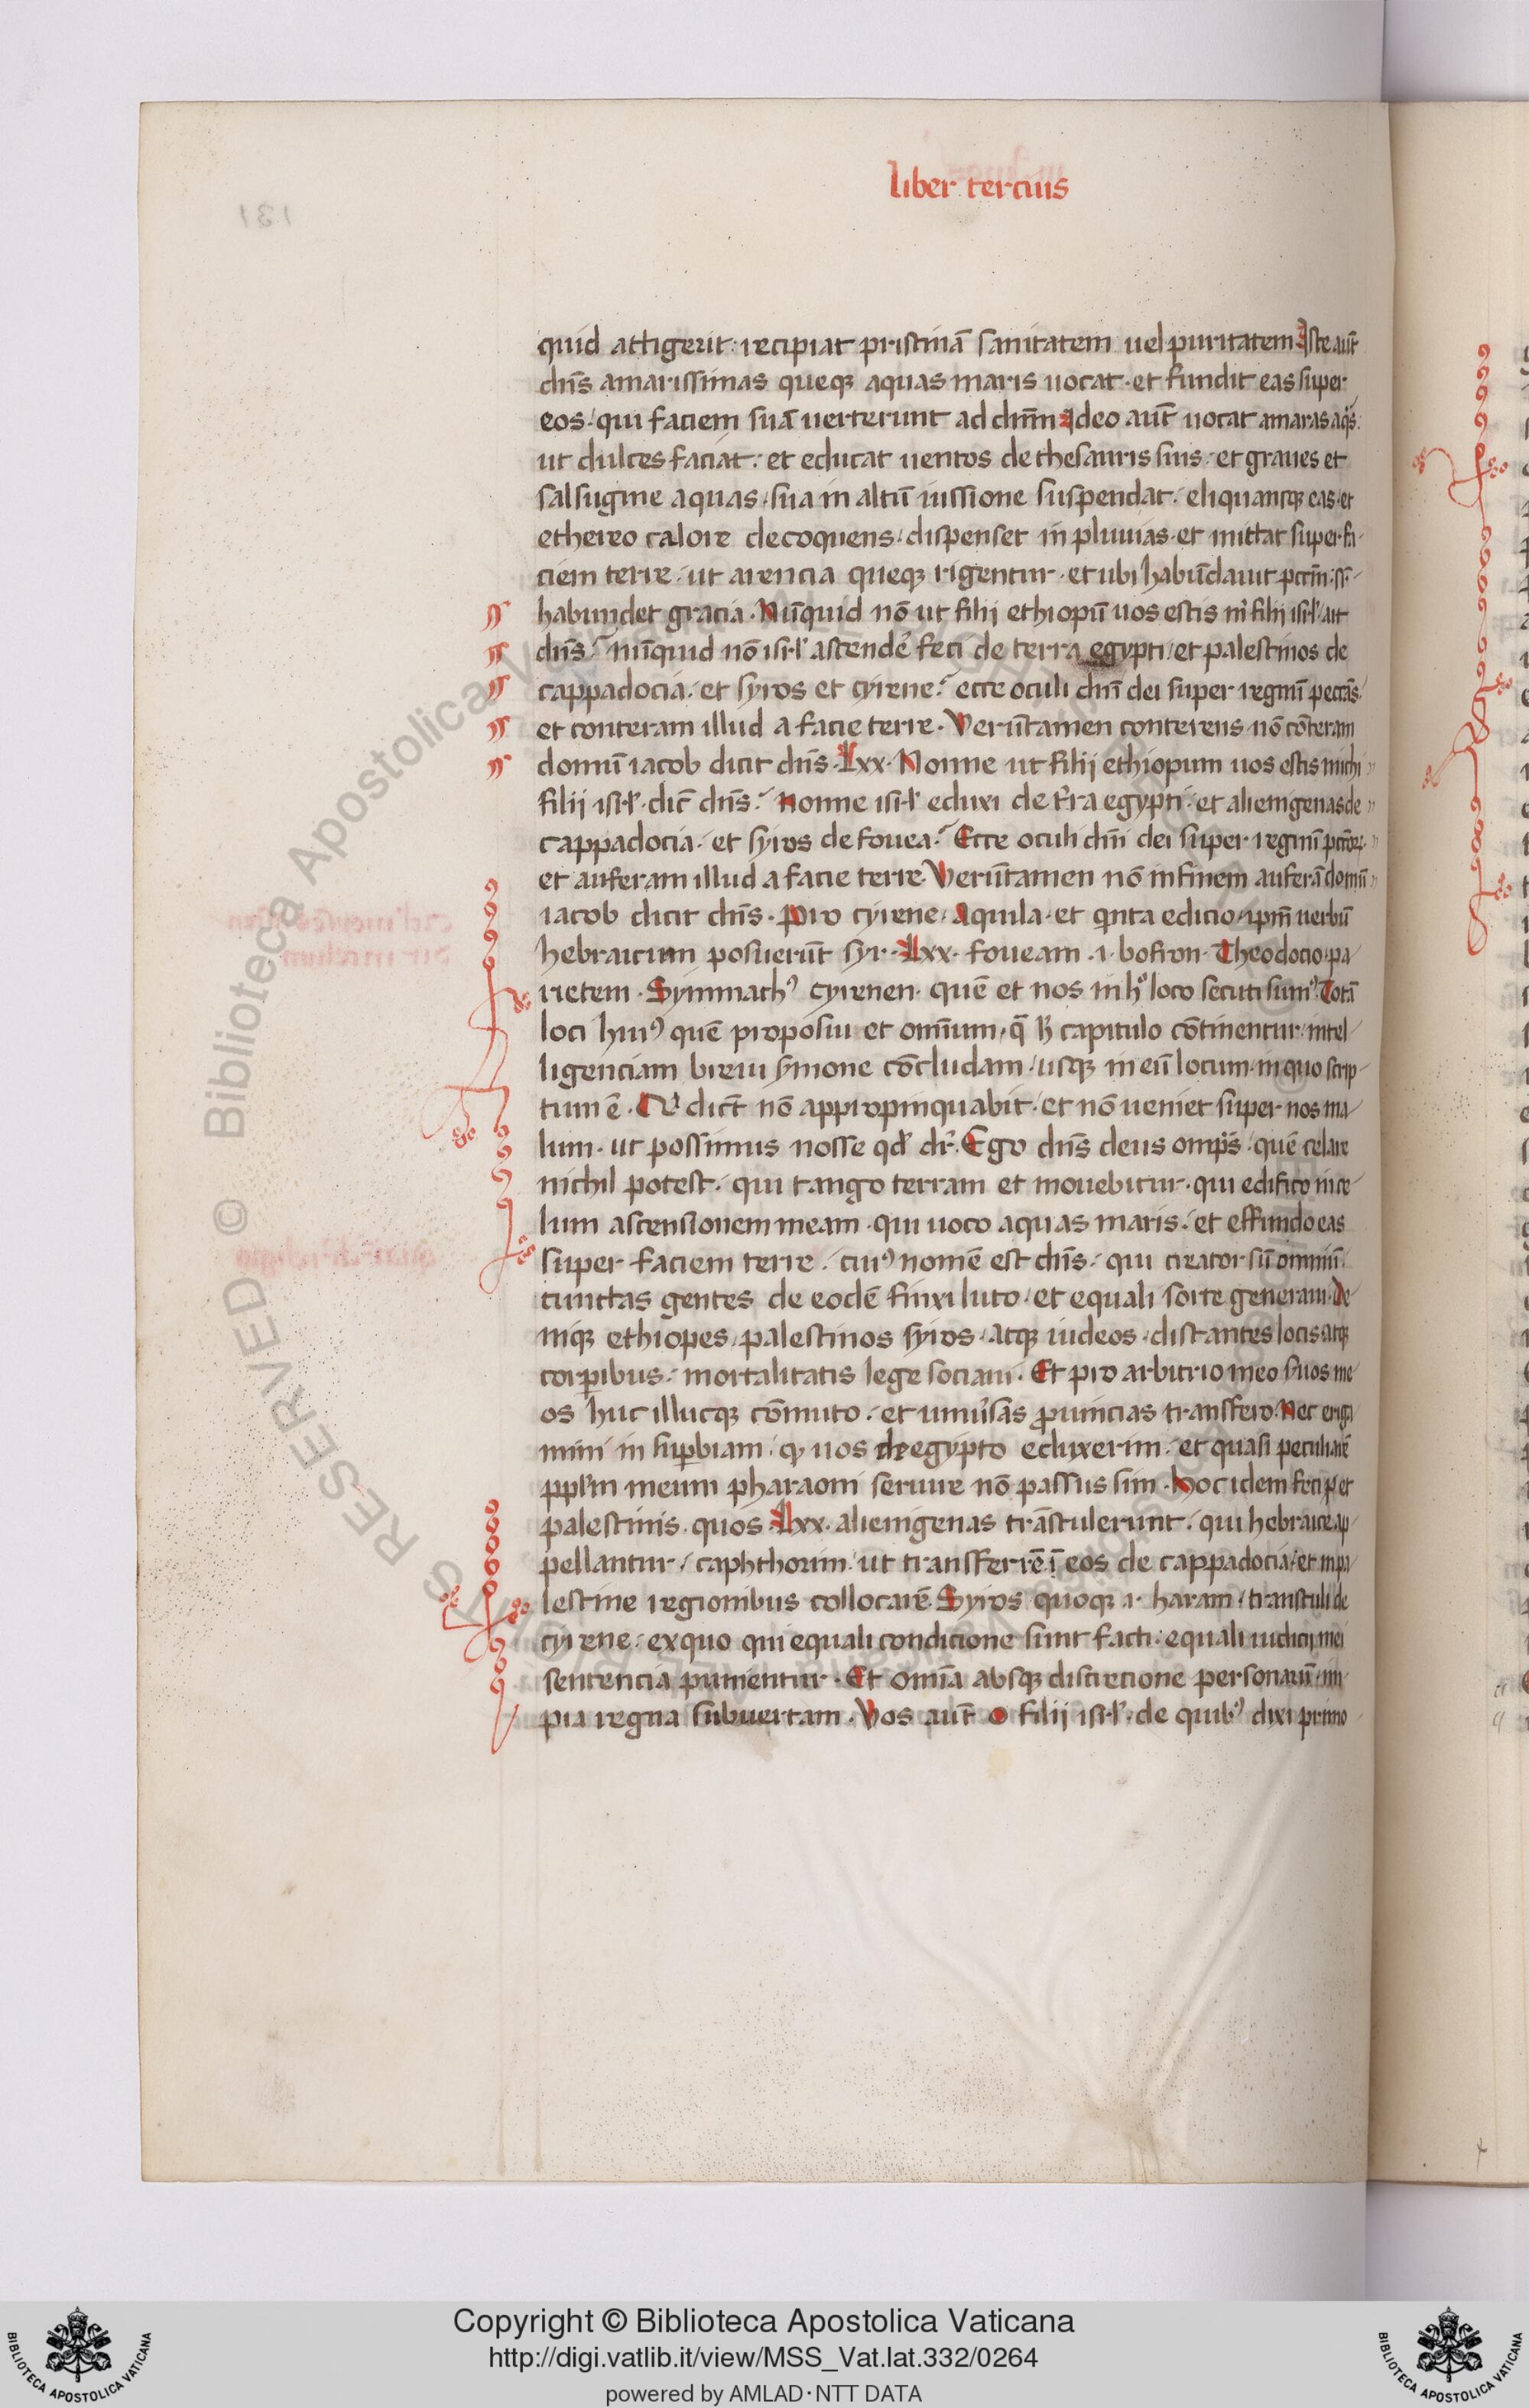 liber tercius
quid attigerit: recipiat pristinā sanitatem uel puritatem Iste aūt
dn̄s amarissimas queqꝫ aquas maris uocat· et fundit eas super
eos· qui faciem suā uerterunt ad dn̄m Ideo aūt uocat amaras aq̄s·
ut dulces faciat: et educat uentos de thesauris suis· et graues et
salsugine aquas· sua in altū iussione suspendat· eliquansqꝫ eas· et
ethereo calore decoquens· dispenset in pluuias· et mittat super fa-
ciem terre· ut arencia queqꝫ rigentur· et ubi habūdauit pctm̄·
habundet gracia· Nūquid nō ut filij ethiopū uos estis m̄ filij isrl̓ ait
dn̄s? nūquid nō isrl̓ ascende᷒ feci de terra egypti· et palestinos de
cappadocia· et syros et cyrene? ecce oculi dn̄i dei super regnū peccās·
et conteram illud a facie terre· Verūtamen conterens nō cōteram
domū iacob dicit dn̄s· Lxx· Nonne ut filij ethiopum uos estis michi
filij isrl̓· dic̄ dn̄s? Nonne isrl̓ eduxi de t᷒ra egypti· et alienigenas de
cappadocia· et syros de fouea? Ecce oculi dn̄i dei super regnū pctōrꝫ·
et auferam illud a facie terre· Verūtamen nō in finem auferā domū
iacob dicit dn̄s· Pro cyrene· Aquila· et qͥnta edicio· ipm̄ uerbū
hebraicum posuerūt syr· Lxx· foueam ·i· bofron· Theodocio· pa
rietem· Symmachꝰ cyrenen· quē et nos in hͦ loco secuti sumꝰ· Totā
loci huiꝰ quē proposui et omnium· q̄ h̄ capitulo cōtinentur· intel
ligenciam breui s᷒mone cōcludam· usqꝫ in eū locum· in quo scrip-
tum ē· Q̇ dict̄ nō appropinquabit· et nō ueniet super nos ma
lum· ut possimus nosse qd̓ dr̄· Ego dn̄s deus omp̄s· quē celare
nichil potest· qui tango terram et mouebitur· qui edifico in ce-
lum ascensionem meam· qui uoco aquas maris· et effundo eas
super faciem terre· cuiꝰ nomē est dn̄s· qui creator sū omniū·
cunctas gentes de eodē finxi luto· et equali sorte generaui· De
niqꝫ ethiopes· palestinos syros· atqꝫ iudeos· distantes locis atqꝫ
corꝑibus· mortalitatis lege sociaui· Et pro arbitrio meo suos me
os huc illucqꝫ cōmuto· et uniu᷒sas ꝓuincias transfero· Nec eriga
mini in suꝑbiam· qꝫ uos de egypto eduxerim· et quasi peculiarē
ppl̓m meum pharaoni seruire nō passus sim· Hoc idem feci et
palestinis· quos Lxx· alienigenas trāstulerunt· qui hebraice ap
pellantur· caphthorim· ut transferrē· i· eos de cappadocia· et in pa
lestine regionibus collocarē· Syros quoqꝫ ·i· haram· transtuli de
cyrene· ex quo qui equali condicione sunt facti· equali iudicij mei
sentencia punientur· Et omīa absqꝫ discrecione personarū· im
pia regna subuertam· Vos aūt o filij isrl̓· de quibꝰ dixi primo
Copyright © Biblioteca Apostolica Vaticana
http://digi.vatlib.it/view/MSS_Vat.lat.332/0264
powered by AMLAD·NTT DATA